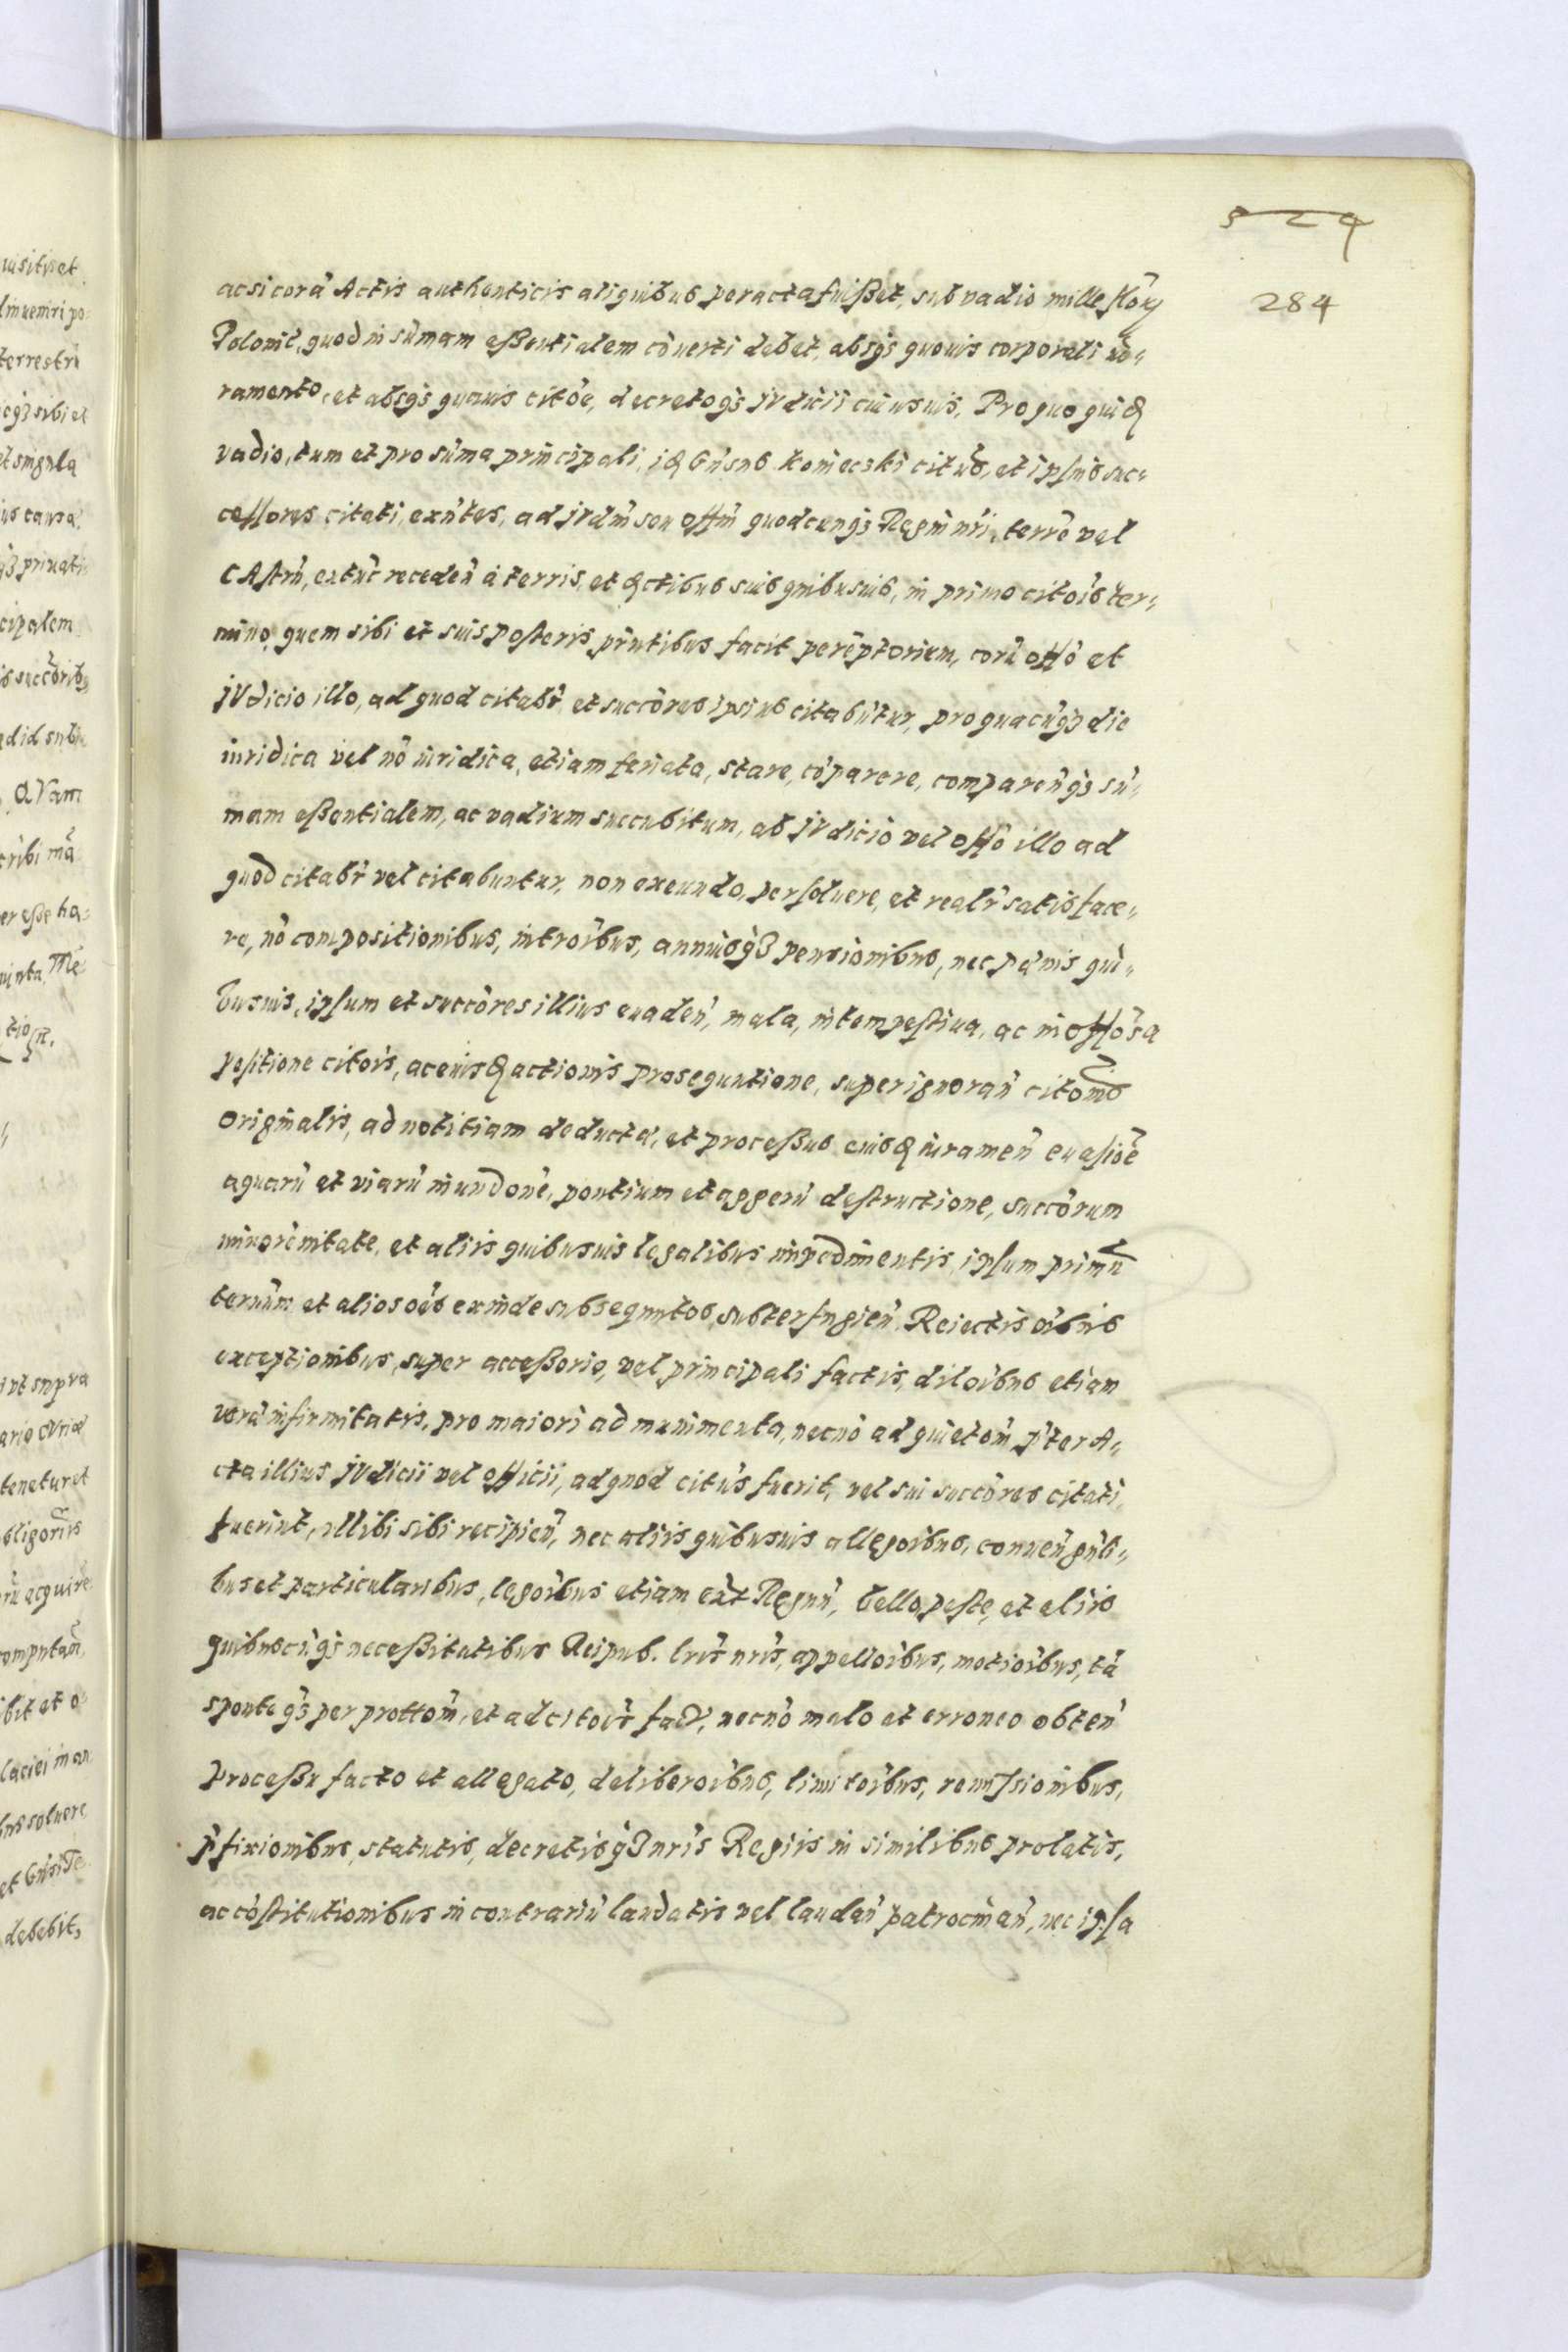 529
284
ac si corā Actis authenticis aliquibus peracta fuißet, sub vadio mille flōr
Polonic̄, quod in sūmam eßentialem cōuerti debet, absq̄ quouis corporali iu=
ramento, et absq̄ quauis citōe, decretoq̄ jvdicii cuiusuis. Pro quo quid
vadio, tum et pro sūma principali, id Gn̄sus Koniecski citūs, et ipsius suc=
cessores citati, exn̄tes, ad jvdm̄ seu offm̄ quodcunq̄ Regni nr̄i, terrē vel
cAstrn̄, extūc recedeń à terris, et dctibus suis quibusuis, in primo citōis ter=
mino, quem sibi et suis posteris pn̄tibus facit perēptorium, corā offō et
jVdicio illo, ad quod citabr̄ et succōres ipsius citabūtur, pro quacūq̄ die
iuridica vel nō iuridica, etiam feriata, stare, cōparere, compareńq̄ sū=
mam eßentialem, ac vadium succubitum, ab jVdicio vel offō illo ad
quod citabr̄ vel citabuntur, non exeundo, persoluere, et realr̄ satisface=
re, nō compositionibus, introībus, annuisq̄ pensionibus, nec pænis qui=
busuis, ipsum et succōres illius euadeń, mala, intempestiua, ac inoffōsa
positione citōis, ac eiusd actionis prosequutione, super ignorań citōnis
originalis, ad notitiam deductā, et proceßus eiusd iuramen̄ euasiōe
aquarū et viarū inundōne, pontium et aggerū destructione, succōrum
minorēnitate, et aliis quibusuis legalibus impedimentis, ipsum primū
termīnm et alios oēs exinde subsequntos subterfugień. Reiectis oībus
exceptionibus, super acceßorio, vel principali factis, dilōibus etiam
veræ infirmitatis, pro maiori ad munimenta, necnō ad quietōm p̄ter A=
cta illius jVdicii vel officii, ad quod citūs fuerit, vel sui succōres citati
fuerint, illibi sibi recipień, nec aliis quibusuis allegōibus, conueń gn̄li=
bus et particularibus, legōibus etiam ext̄ Regnū, bello, peste, et aliis
quibuscūq̄ neceßitatibus Reipub. lrīs nrīs, appellōibus, motiōibus, tā
sponte q̄ per prottōm, et ad citōis fact̄, necnō malo et erroneo obteń
Proceßu facto et allegato, deliberōibus, limitōibus, remissionibus,
p̄fixionibus, statutis, decretisq̄ nrīs Regiis in similibus prolatis,
ac cōstitutionibus in contrariū laudatis vel laudań patrocinań, nec ipsa